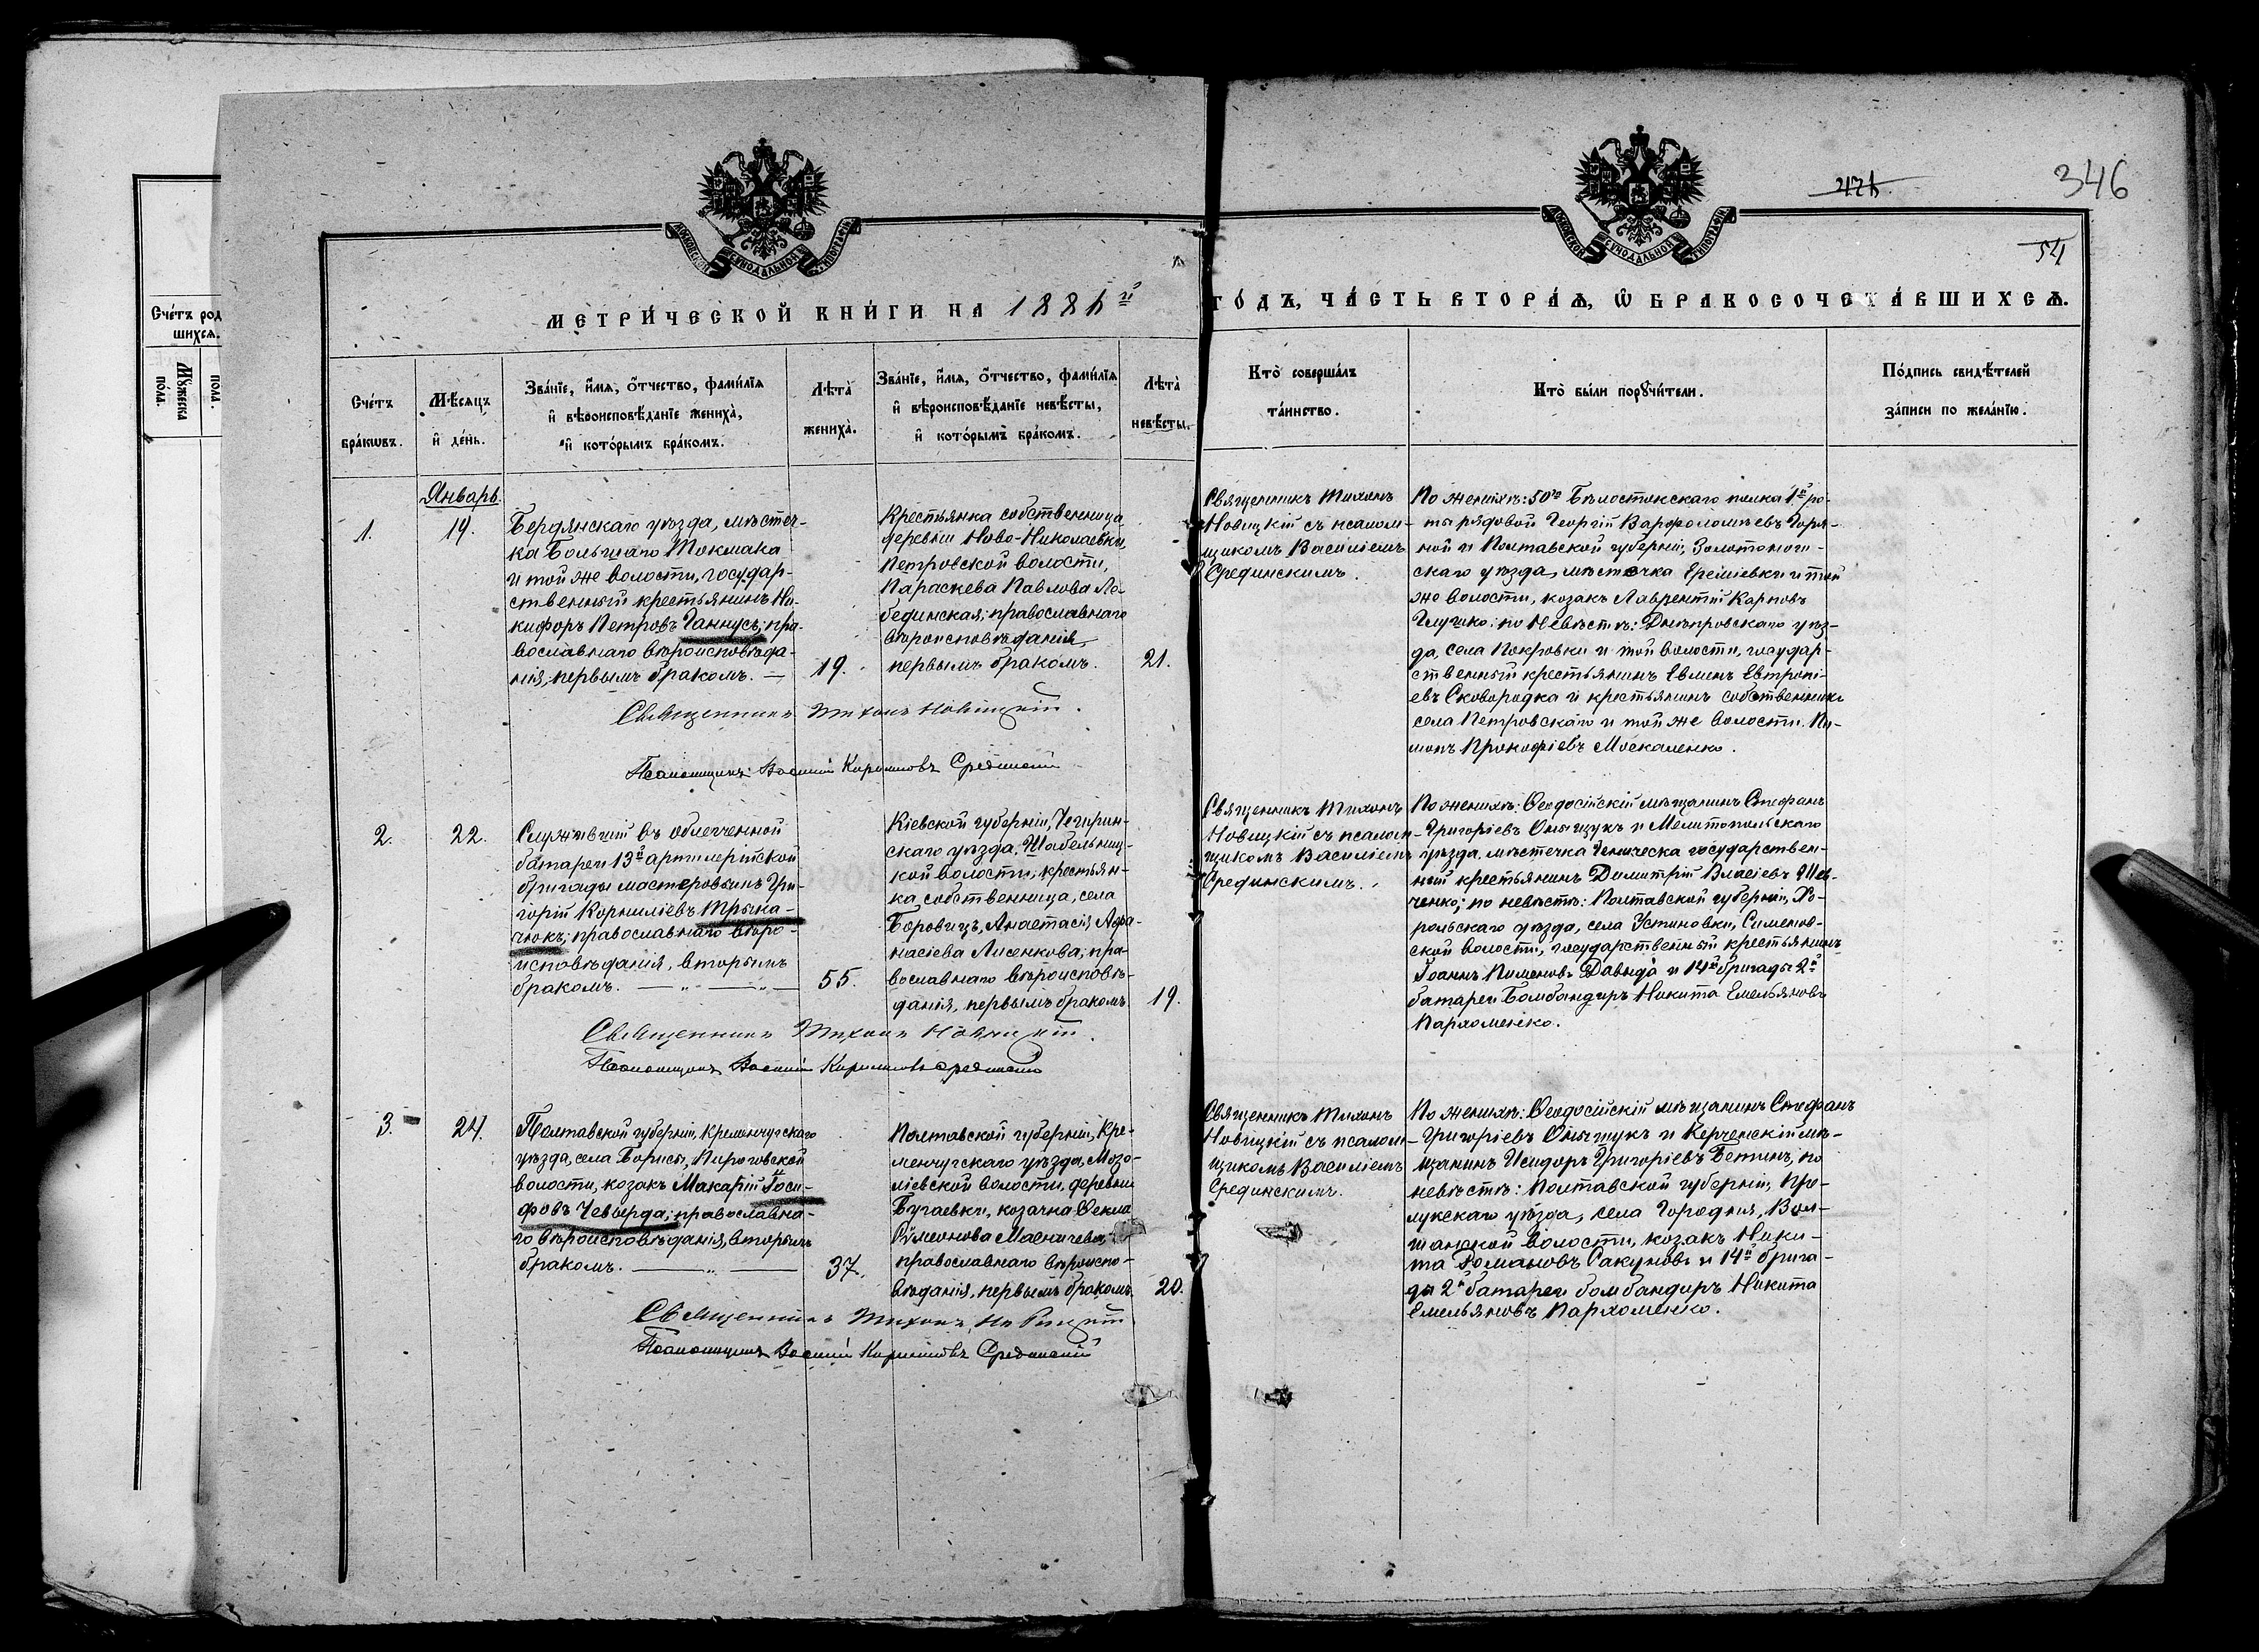 346
54
МОСКОВСКОЙ СѴНОДАЛЬНОЙ ТИПОГРАФІИ
МОСКОВСКОЙ СѴНОДАЛЬНОЙ ТИПОГРАФІИ
МЕТРИ́ЧЕСКОЙ КНИ́ГИ НА 188
ГО́ДЪ, ЧА́СТЬ ВТОРА́Ѧ, Ѽ БРАКОСОЧЕТА́ВШИХСѦ.
Сче́тъ род
шихсѧ.
Мꙋ́жеска
пола.
пола.
Сче́тъ
бра́кѡвъ.
Мѣ́сѧцъ
и҆ де́нь.
Зва́нїе, и҆́мѧ, ѻ҆́тчество, фами́лїѧ
и҆ вѣроисповѣ́данїе жениха̀,
и҆ кото́рымъ бра́комъ.
Лѣ́та̀
жениха̀.
Зва́нїе, и҆́мѧ, ѻ҆́тчество, фами́лїѧ
и҆ вѣроисповѣ́данїе невѣ́сты,
и҆ кото́рымъ бра́комъ.
Лѣ́та̀
невѣ́сты.
Кто̀ соверша́лъ
та́инство.
Кто̀ бы́ли порꙋчи́тели.
По́дпись свидѣ́телей
за́писи по жела́нїю.
Январь.
1.
19.
Бердянскаго уѣзда, мѣстеч-
ка Большаго Токмака
и той же волости, государ-
ственный крестьянинъ Ни-
кифоръ Петровъ Ганнусъ; пра-
вославнаго вѣроисповѣда-
нія, первымъ бракомъ. —
19.
Крестьянка собственница
деревни Ново-Николаевки,
Петровской волости,
Параскева Павлова Ле-
бединская; православнаго
вѣроисповѣданія,
первымъ бракомъ.
21.
Священникъ Тихонъ
Новицкій съ псалом-
щикомъ Василіемъ
Срединскимъ.
По женихѣ: 50го Бѣлостокскаго полка 1й ро-
ты рядовой Георгій Варфоломѣевъ Горя-
ной и Полтавской губерніи, Золотоноги-
скаго уѣзда, мѣстечка Ереміевки и той
же волости, козакъ Лаврентій Карповъ
Глушко: по Невѣстѣ: Днѣпровскаго уѣз-
да, села Покровки и той волости, государ-
ственный крестьянинъ Евтропі-
евъ Сковородка и крестьянинъ собственникъ
села Петровскаго и той же волости. Пи-
монъ Прокофіевъ Москаленко.
Священникъ Тихонъ Новицкій.
Псаломщикъ Василій Кирилловъ Срединскій
2.
22.
Служившій въ облегченной
батареи 13й артилерійской
бригады мастеровымъ Гри-
горій Корниліевъ Трына-
чюкъ; православнаго вѣро-
исповѣданія, вторымъ
бракомъ. — „ — „ —
55.
Кіевской губерніи, Чегирин-
скаго уѣзда, Шабельниц-
кой волости, крестьян-
ка, собственница, села
Боровицъ, Анастасія Афа-
насіева Лисенкова; пра-
вославнаго вѣроисповѣ-
данія, первымъ бракомъ
19.
Священникъ Тихонъ
Новицкій съ псалом-
щикомъ Василіемъ
Срединскимъ.
По женихѣ: Ѳеодосійскій мѣщанинъ Стефанъ
Григоріевъ Оныщукъ и Мелитопольскаго
уѣзда, мѣстечка Геническа государствен-
ный крестьянинъ Димитрій Власіевъ Шев-
ченко; по невѣстѣ: Полтавской губерніи, Хо-
рольскаго уѣзда, села Устиновки, Сименов-
ской волости, государственный крестьянинъ
Іоаннъ Пименовъ Давыда и 14й бригады 2й
батареи Бомбандиръ Никита Емельяновъ
Пархоменко.
Священникъ Тихонъ Новицкій.
Псаломщикъ Василій Кирилловъ Срединскій
3.
24.
Полтавской губерніи, Кременчугскаго
уѣзда, села Борисы, Пироговской
волости, козакъ Макарій Іоси-
фовъ Чеверда; православна-
го вѣроисповѣданія, вторымъ
бракомъ. — „ —
37.
Полтавской губерніи, Кре-
менчугскаго уѣзда, Мозо-
ліевской волости, деревни
Бугаевки, козачка Ѳекла
Сѵмеонова Масничева,
православнаго вѣроиспо-
вѣданія, первымъ бракомъ.
20.
Священникъ Тихонъ
Новицкій съ псалом-
щикомъ Василіемъ
Срединскимъ.
По женихѣ: Ѳеодосійскій мѣщанинъ Стефанъ
Григоріевъ Оныщукъ и Керченскій мѣ-
щанинъ Исидоръ Григоріевъ Бетинъ, по
невѣстѣ: Полтавской губерніи, При-
лукскаго уѣзда, села Городня, Вол-
шанской волости, козакъ Ники-
та Романовъ Сакуновъ и 14й брига-
ды 2й батареи бомбандиръ Никита
Емельяновъ Пархоменко.
Священникъ Тихонъ Новицкій
Псаломщикъ Василій Кирилловъ Срединскій